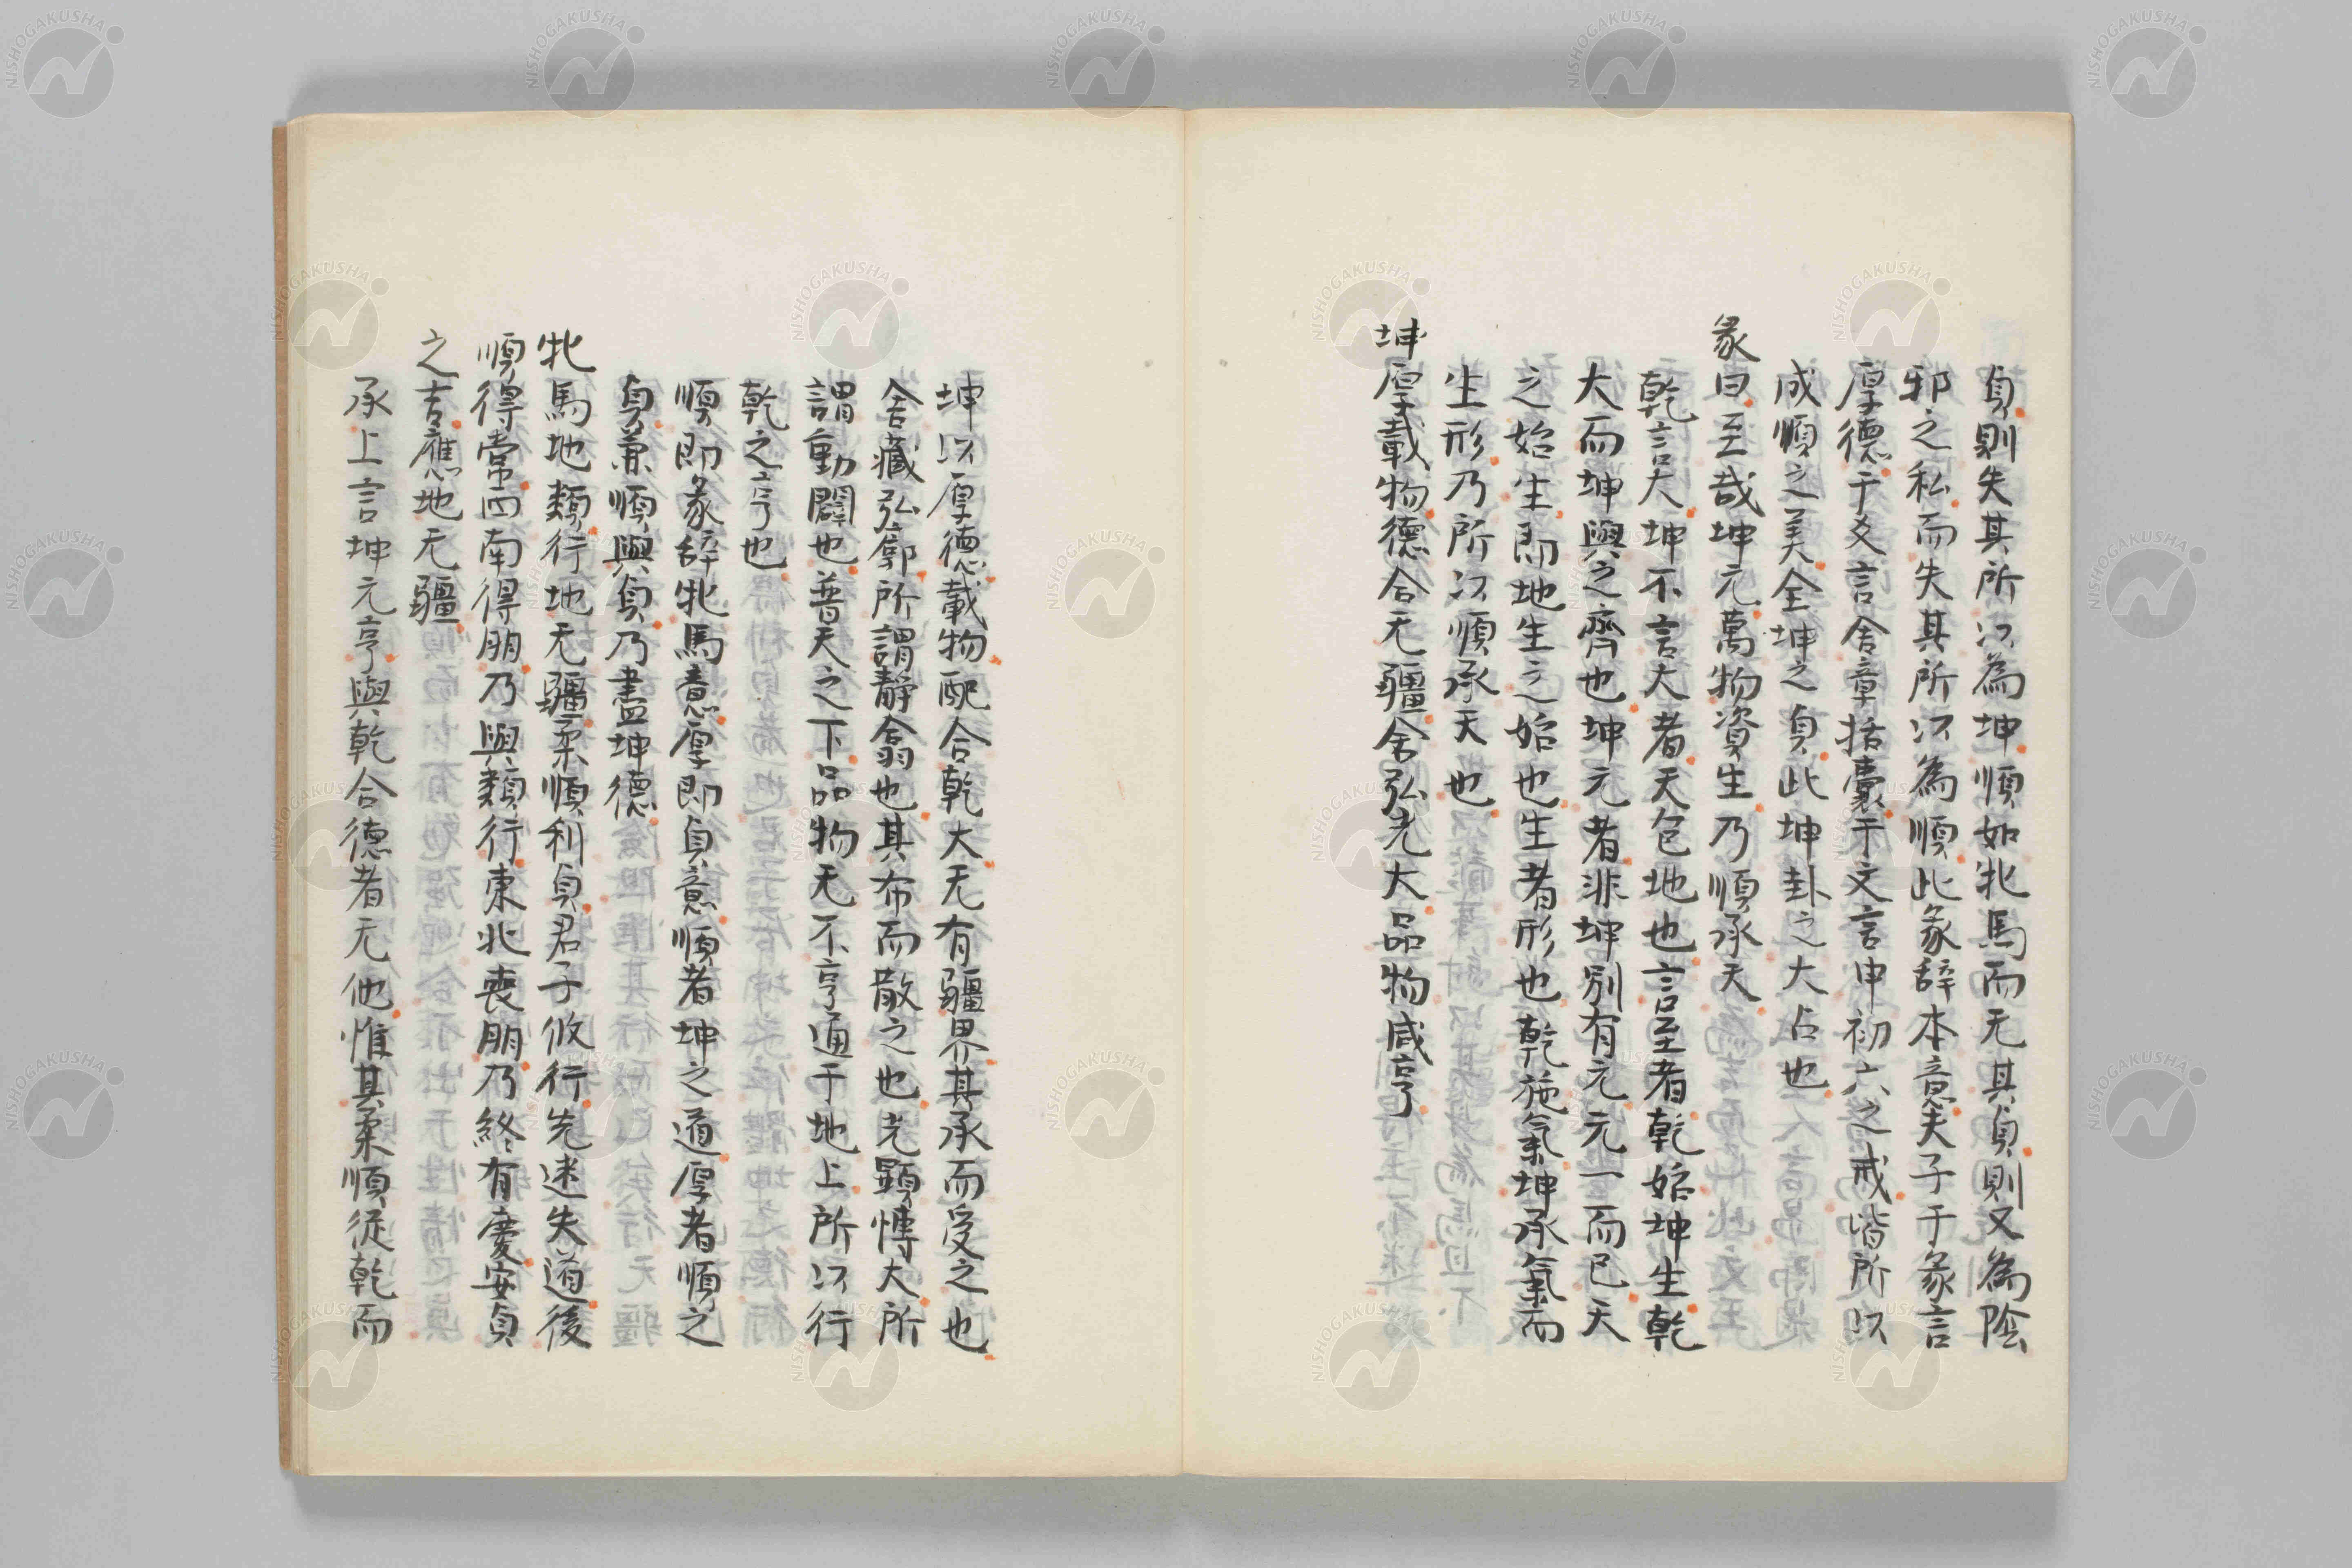 貞則失其所以為坤順如牝馬而无其貞則又為陰
邪之私而失其所以為順此彖辞本意夫子于彖言
厚德于爻言含章括囊于文言申初六之戒皆所以
成順之美全坤之貞此坤卦之大占也
彖曰至哉坤元萬物資生乃順承天
乾言大坤不言大者天包地也言至者乾始坤生乾
大而坤與之齊也坤元者非坤別有元元一而已天
之始生即地生之始也生者形也乾施氣坤承氣而
生形乃所以順承天也
坤厚載物德合无疆含弘光大品物咸亨
坤以厚德載物配合乾大无有疆界其承而受之也
含藏弘廓所謂靜翕也其布而散之也光顯慱大所
謂動闢也普天之下品物无不亨通于地上所以行
乾之亨也
順即彖辞牝馬意厚即貞意順者坤之道厚者順之
貞兼順與貞乃盡坤德
牝馬地類行地无疆柔順利貞君子攸行先迷失道後
順得常西南得朋乃與類行東北喪朋乃終有慶安貞
之吉應地无疆
承上言坤元亨與乾合德者无他惟其柔順従乾而
NISHOGAKUSHA